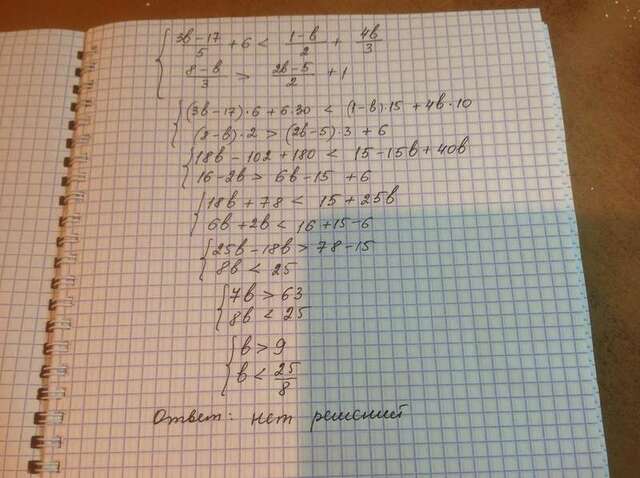 { (3в-17)/5 + 6 < (1-в)/2 + 4в/3
(8-в)/3 > (2в-5)/2 + 1
{ (3в-17)·6 + 6·30 < (1-в)·15 + 4в·10
(8-в)·2 > (2в-5)·3 + 6
{ 18в - 102 + 180 < 15 - 15в + 40в
16 - 2в > 6в - 15 + 6
{ 18в + 78 < 15 + 25в
6в + 2в < 16 + 15 - 6
{ 25в - 18в > 78 - 15
8в < 25
{ 7в > 63
8в < 25
{ в > 9
в < 25/8
Ответ: нет решений